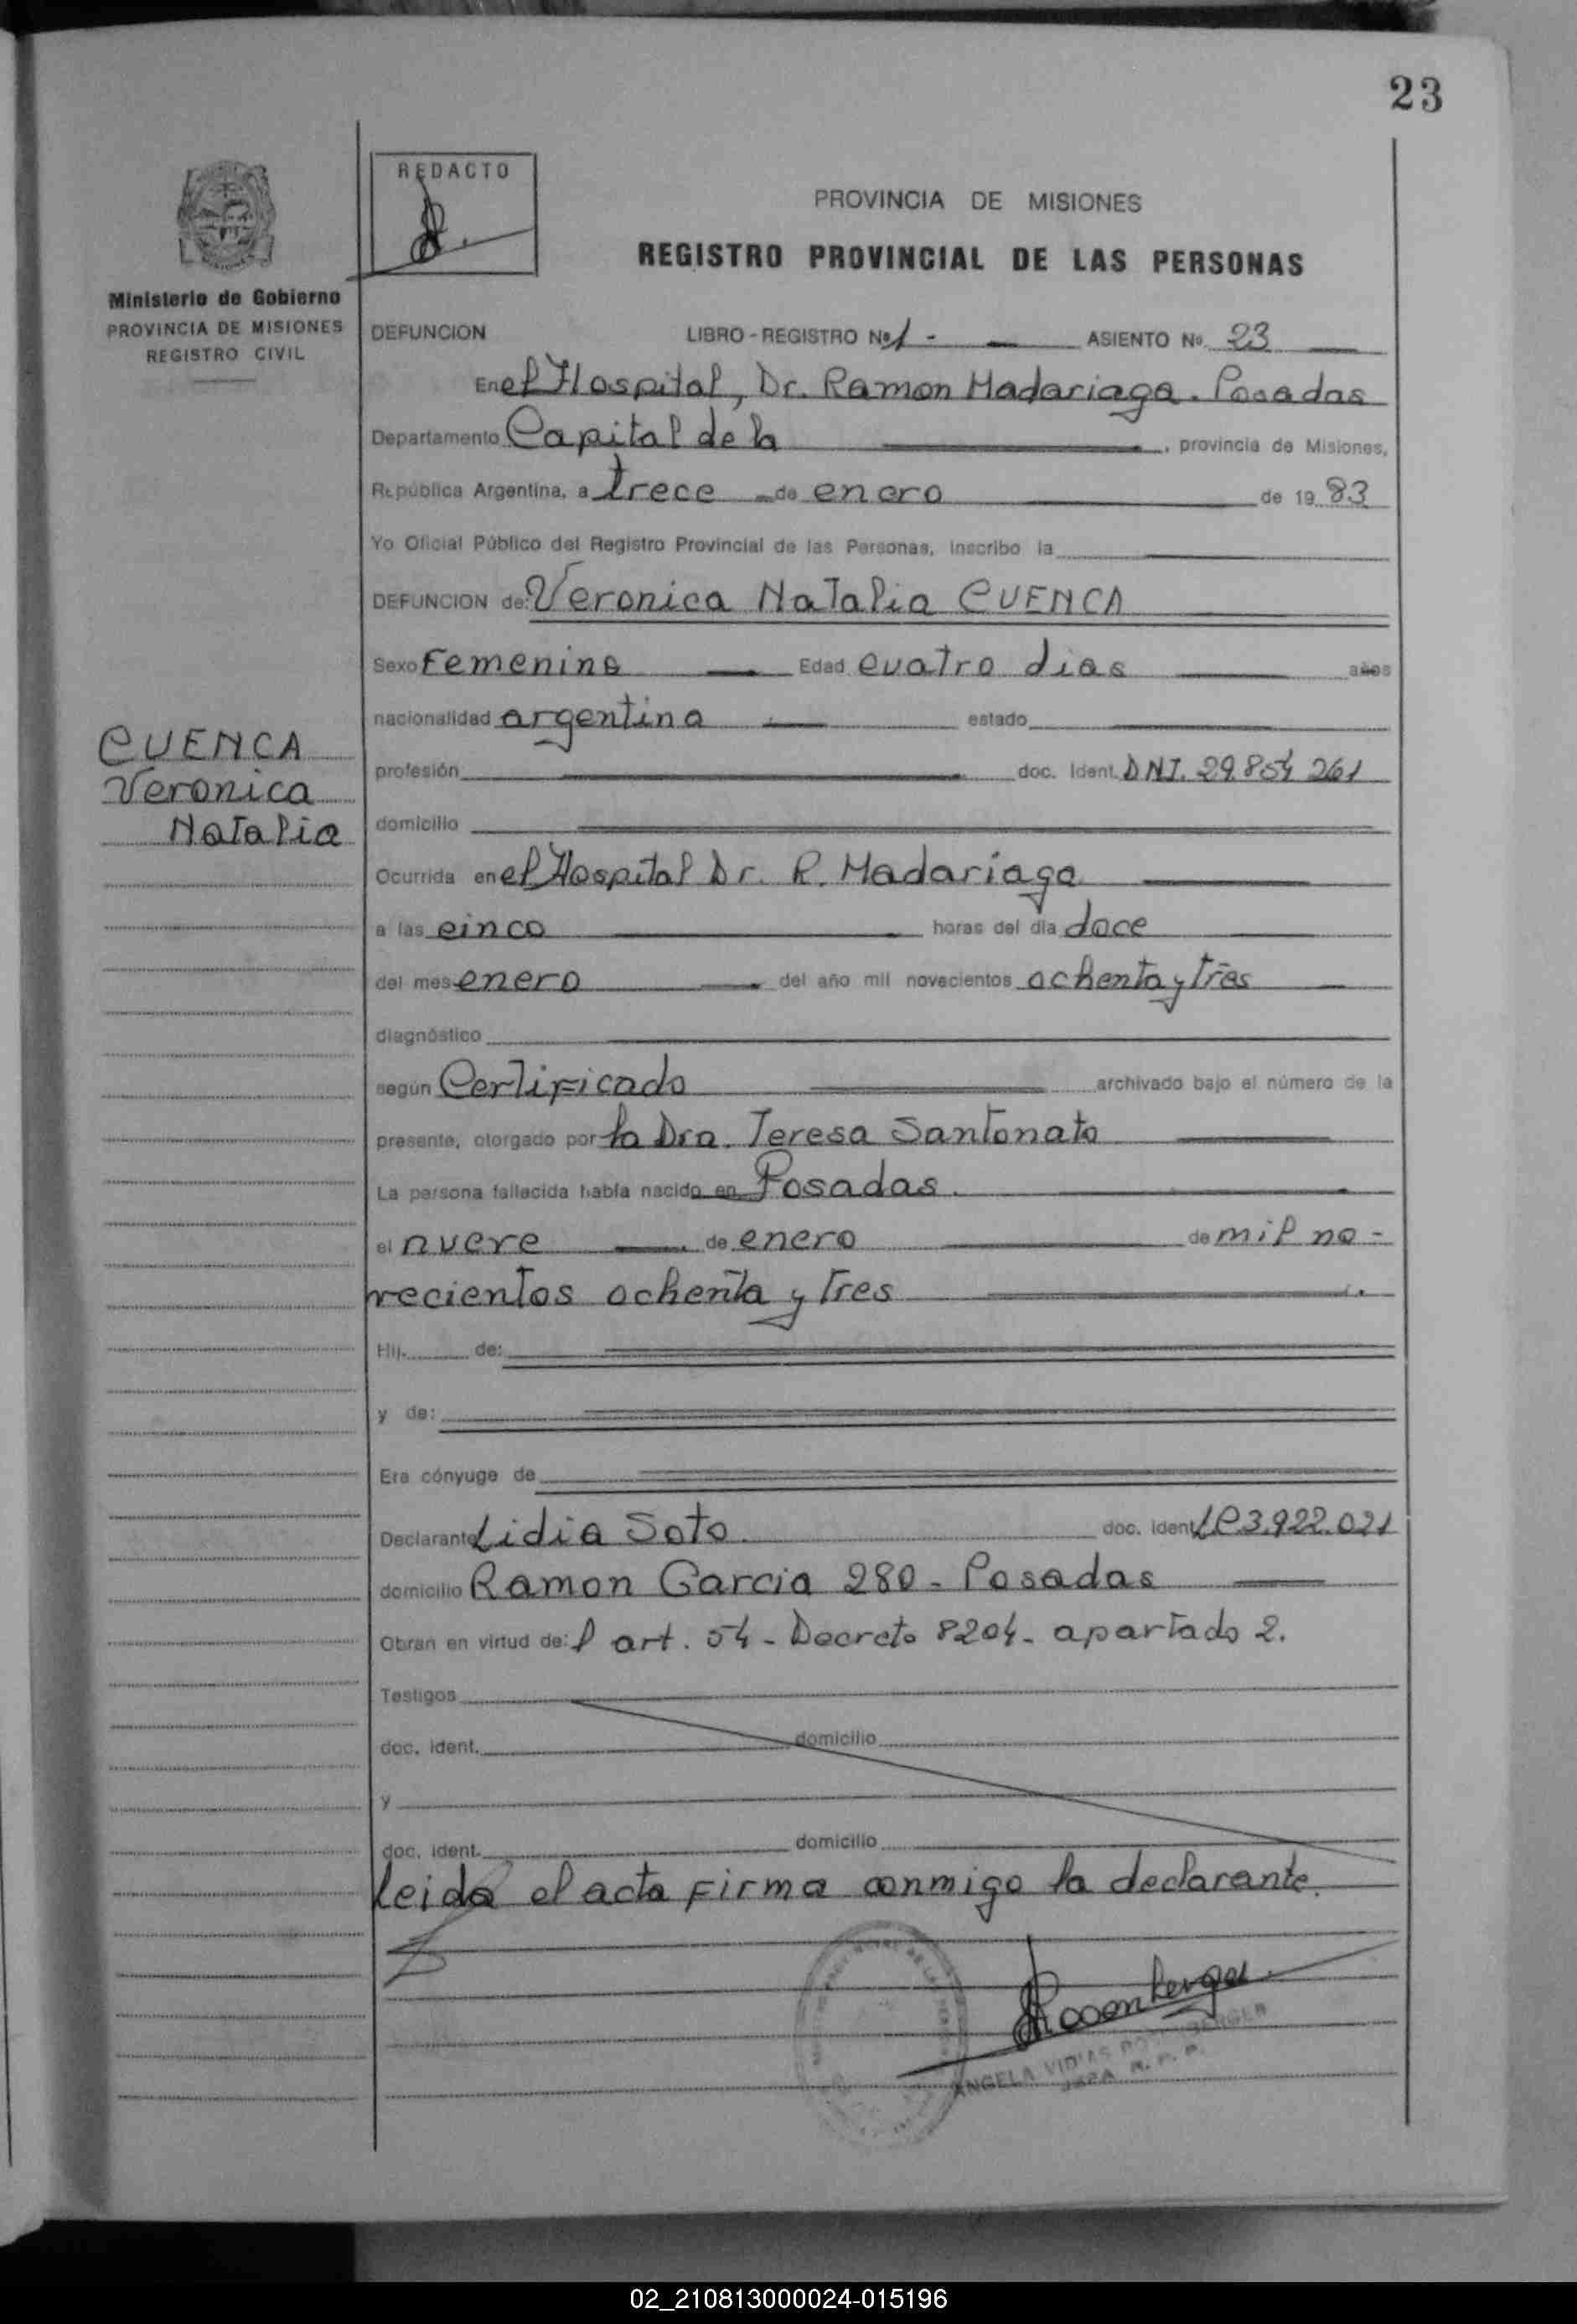 23
REDACTO
PROVINCIA DE MISIONES
REGISTRO PROVINCIAL DE LAS PERSONAS
Ministerio de Gobierno
PROVINCIA DE MISIONES
REGISTRO CIVIL
DEFUNCION LIBRO - REGISTRO Nº 1 - ASIENTO Nº 23
En el Hospital, Dr. Ramon Madariaga. Posadas
Departamento Capital de la , provincia de Misiones,
República Argentina, a trece de enero de 19 83
Yo Oficial Público del Registro Provincial de las Personas, inscribo la
DEFUNCION de: Veronica Natalia CUENCA
Sexo Femenino Edad cuatro dias años
nacionalidad argentina estado
CUENCA
Veronica
Natalia
profesión doc. Ident. DNI. 29.854 261
domicilio
Ocurrida en el Hospital Dr. R. Madariaga
a las cinco horas del día doce
del mes enero del año mil novecientos ochenta y tres
diagnóstico
según Certificado archivado bajo el número de la
presente, otorgado por la Dra. Teresa Santonato
La persona fallecida había nacido en Posadas.
el nueve de enero de mil no-
vecientos ochenta y tres
Hij de:
y de:
Era cónyuge de
Declarante Lidia Soto. doc. ident LC 3.922.021
domicilio Ramon Garcia 280 - Posadas
Obran en virtud de: l art. 54 - Decreto 8204 - apartado 2.
Testigos
doc. ident. domicilio
y
doc. ident. domicilio
Leida el acta firma conmigo la declarante.
Rosenberger
ANGELA
02_210813000024-015196